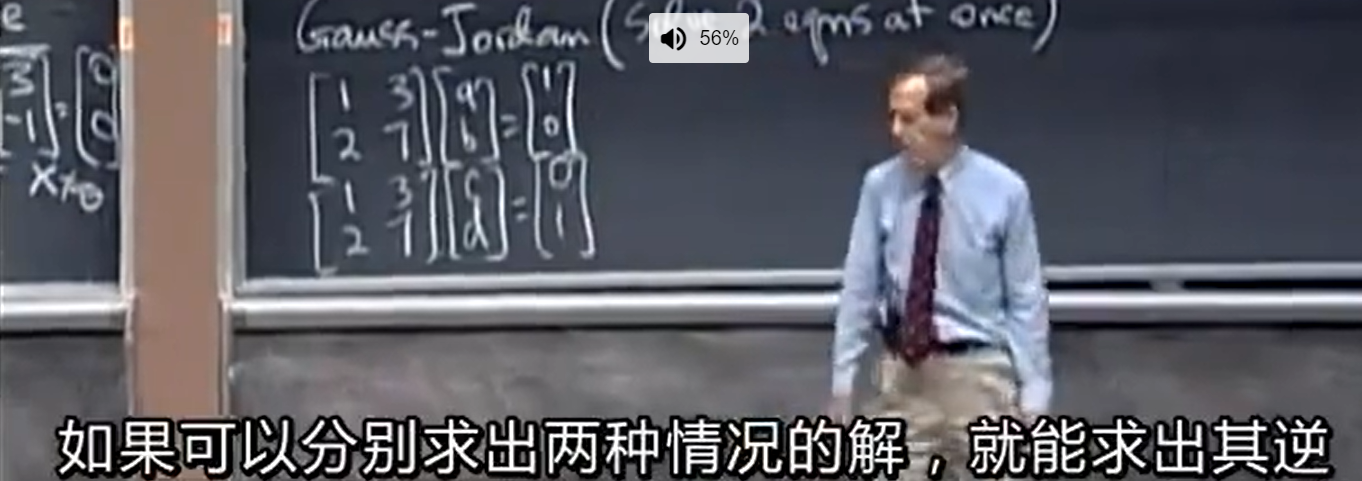 e
3
-1 = 0
0
x≠0
Gauss-Jordan (Solve 2 eqns at once)
56%
[1 3
2 7] [a
b] = [1
0]
[1 3
2 7] [c
d] = [0
1]
如果可以分别求出两种情况的解，就能求出其逆